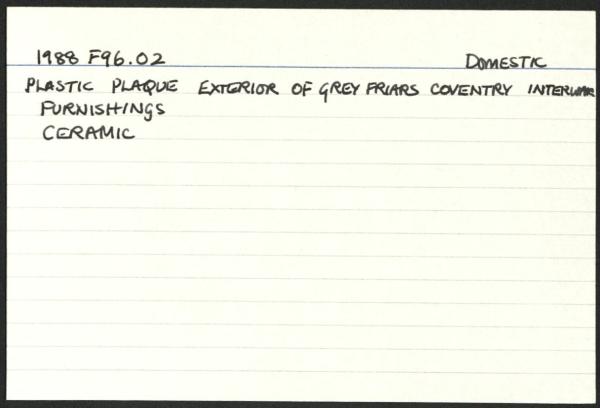 1988 F96.02 DOMESTIC
PLASTIC PLAQUE EXTERIOR OF GREY FRIARS COVENTRY INTERWAR
FURNISHINGS
CERAMIC